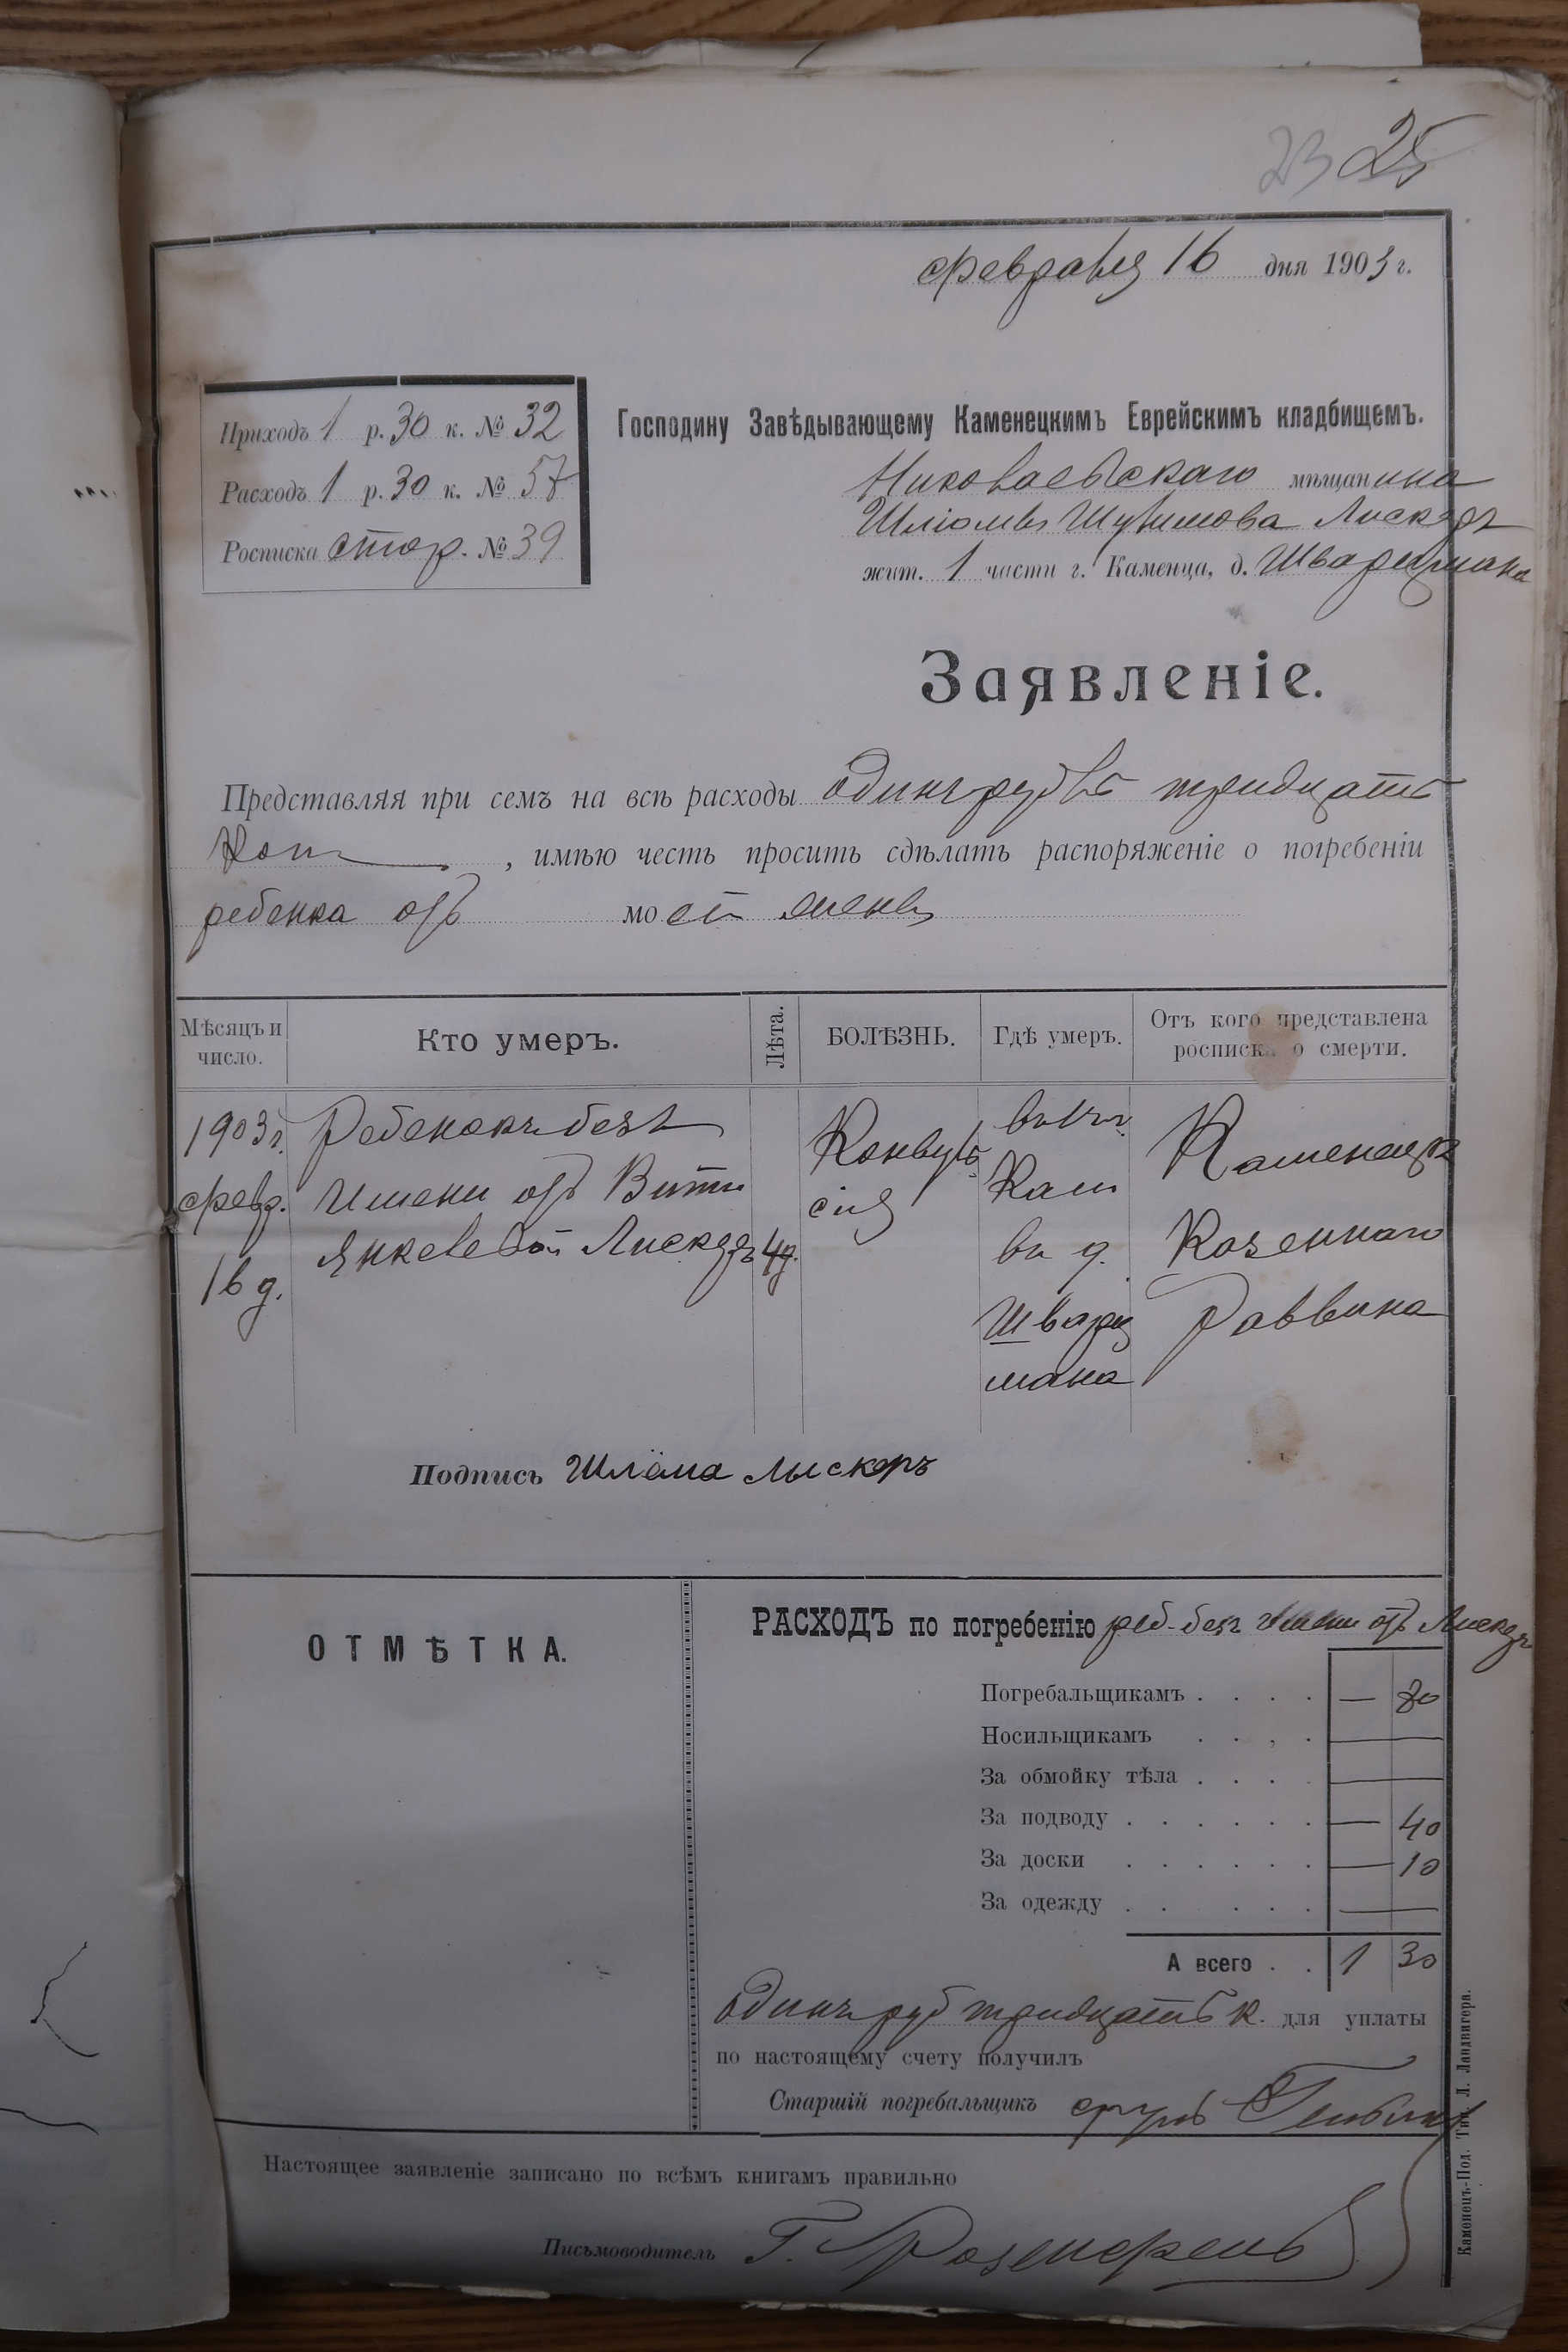 23 25
февраля 16 дня 1903 г.
Приходъ 1 р. 30 к. № 32
Расходъ 1 р. 30 к. № 57
Росписка стор. № 39
Господину Завѣдывающему Каменецкимъ Еврейскимъ кладбищемъ.
Николаевскаго мѣщанина
Шліомы Шулимова Лискеръ
жит. 1 части г. Каменца, д. Шварцмана
Заявленіе.
Представляя при семъ на всѣ расходы одинъ рубль тридцать
коп , имѣю честь просить сдѣлать распоряженіе о погребеніи
ребенка отъ моей жены
Мѣсяцъ и число.
Кто умеръ.
Лѣта.
БОЛѢЗНЬ.
Гдѣ умеръ.
Отъ кого представлена росписка о смерти.
1903 г.
февр.
16 д.
Ребенокъ безъ
имени отъ
Янкелевой Лискеръ
4 д.
Конвуль
сія
Кам
въ д.
Шварц
мана
Каменецк
Казеннаго
Раввина
Подпись Шлёма Лискеръ
ОТМѢТКА.
РАСХОДЪ по погребенію реб. безъ имени отъ Лискеръ
Погребальщикамъ . . . . — 80
Носильщикамъ . . , . —
За обмойку тѣла . . . . —
За подводу . . . . . . — 40
За доски . . . . . . — 10
За одежду . . . . . . —
А всего . . 1 30
одинъ руб тридцать к. для уплаты
по настоящему счету получилъ
Старшій погребальщикъ
Настоящее заявленіе записано по всѣмъ книгамъ правильно
Письмоводитель Г. Розенфельд
Каменецъ-Под. Тип. Л. Ландвигера.